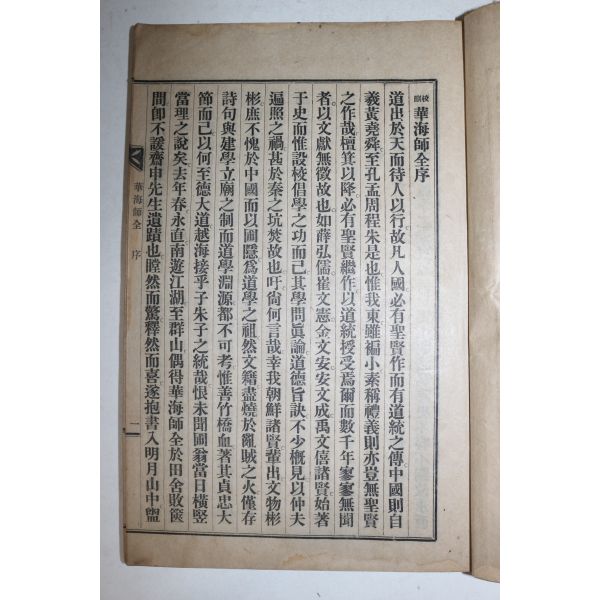 校訂華海師全序
道出於天而待人以行故凡人國必有聖賢作而有道統之傳中國則自
羲黃堯舜至孔孟周程朱是也惟我東雖褊小素稱禮義則亦豈無聖賢
之作哉檀箕以降必有聖賢繼作以道統授受焉爾而數千年寥寥無聞
者以文獻無徵故也如薛弘儒崔文憲金文安安文成禹文僖諸賢始著
于史而惟設校倡學之功而已其學問眞論道德旨訣不少槪見以仲夫
遍照之禍甚於秦之坑焚故也吁尙何言哉幸我朝鮮諸賢輩出文物彬
彬庶不愧於中國而以圃隱爲道學之祖然文籍盡燒於亂賊之火僅存
詩句與建學立廟之制而道學淵源都不可考惟善竹橋血著其貞忠大
節而已以何至德大道越海接乎子朱子之統哉恨未聞圃翁當日橫竪
當理之說矣去年春永直南遊江湖至群山偶得華海師全於田舍敗篋
間卽不諼齋申先生遺蹟也瞠然而驚釋然而喜遂抱書入明月山中盥
華海師全 序 一